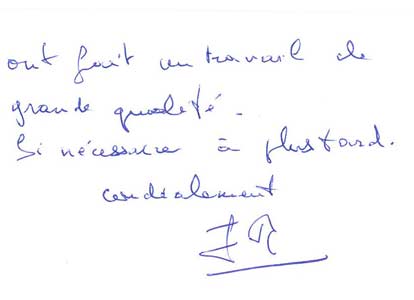 ont fait un travail de
grande qualité.
Si nécessaire à plus tard.
cordialement
JR